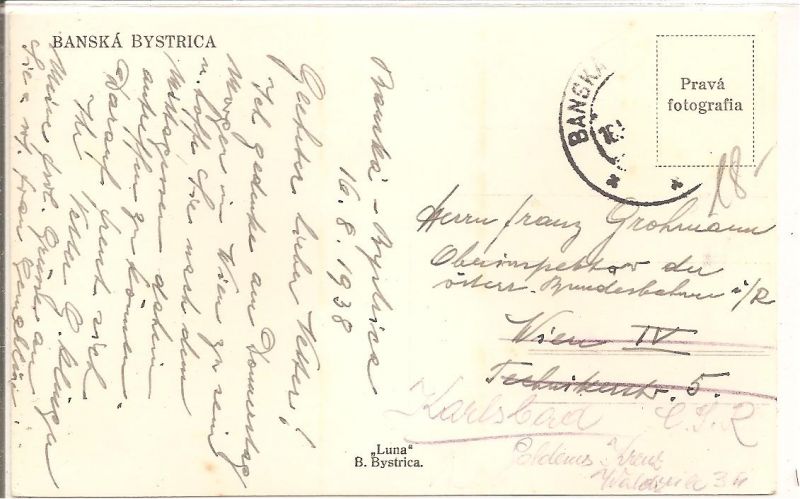 BANSKÁ BYSTRICA
Banská-Bystrica
16.8.1938
Geehrter lieber Vetter!
Ich gedenke am Donnerstag
Morgen in Wien zu sein
u. hoffe Sie nach dem
Mittagessen daheim
antreffen zu können.
Darauf freut sich
Ihr Vetter G.
Meine Grüße an
Sie u. Frau
BANSKÁ
Pravá
fotografia
18
Herrn Franz Grohmann
Oberinspektor der
österr. Bundesbahnen i/R
Wien IV
Technikerstr. 5.
Karlsbad Č.S.R
Goldenes Kreuz
„Luna"
B. Bystrica.